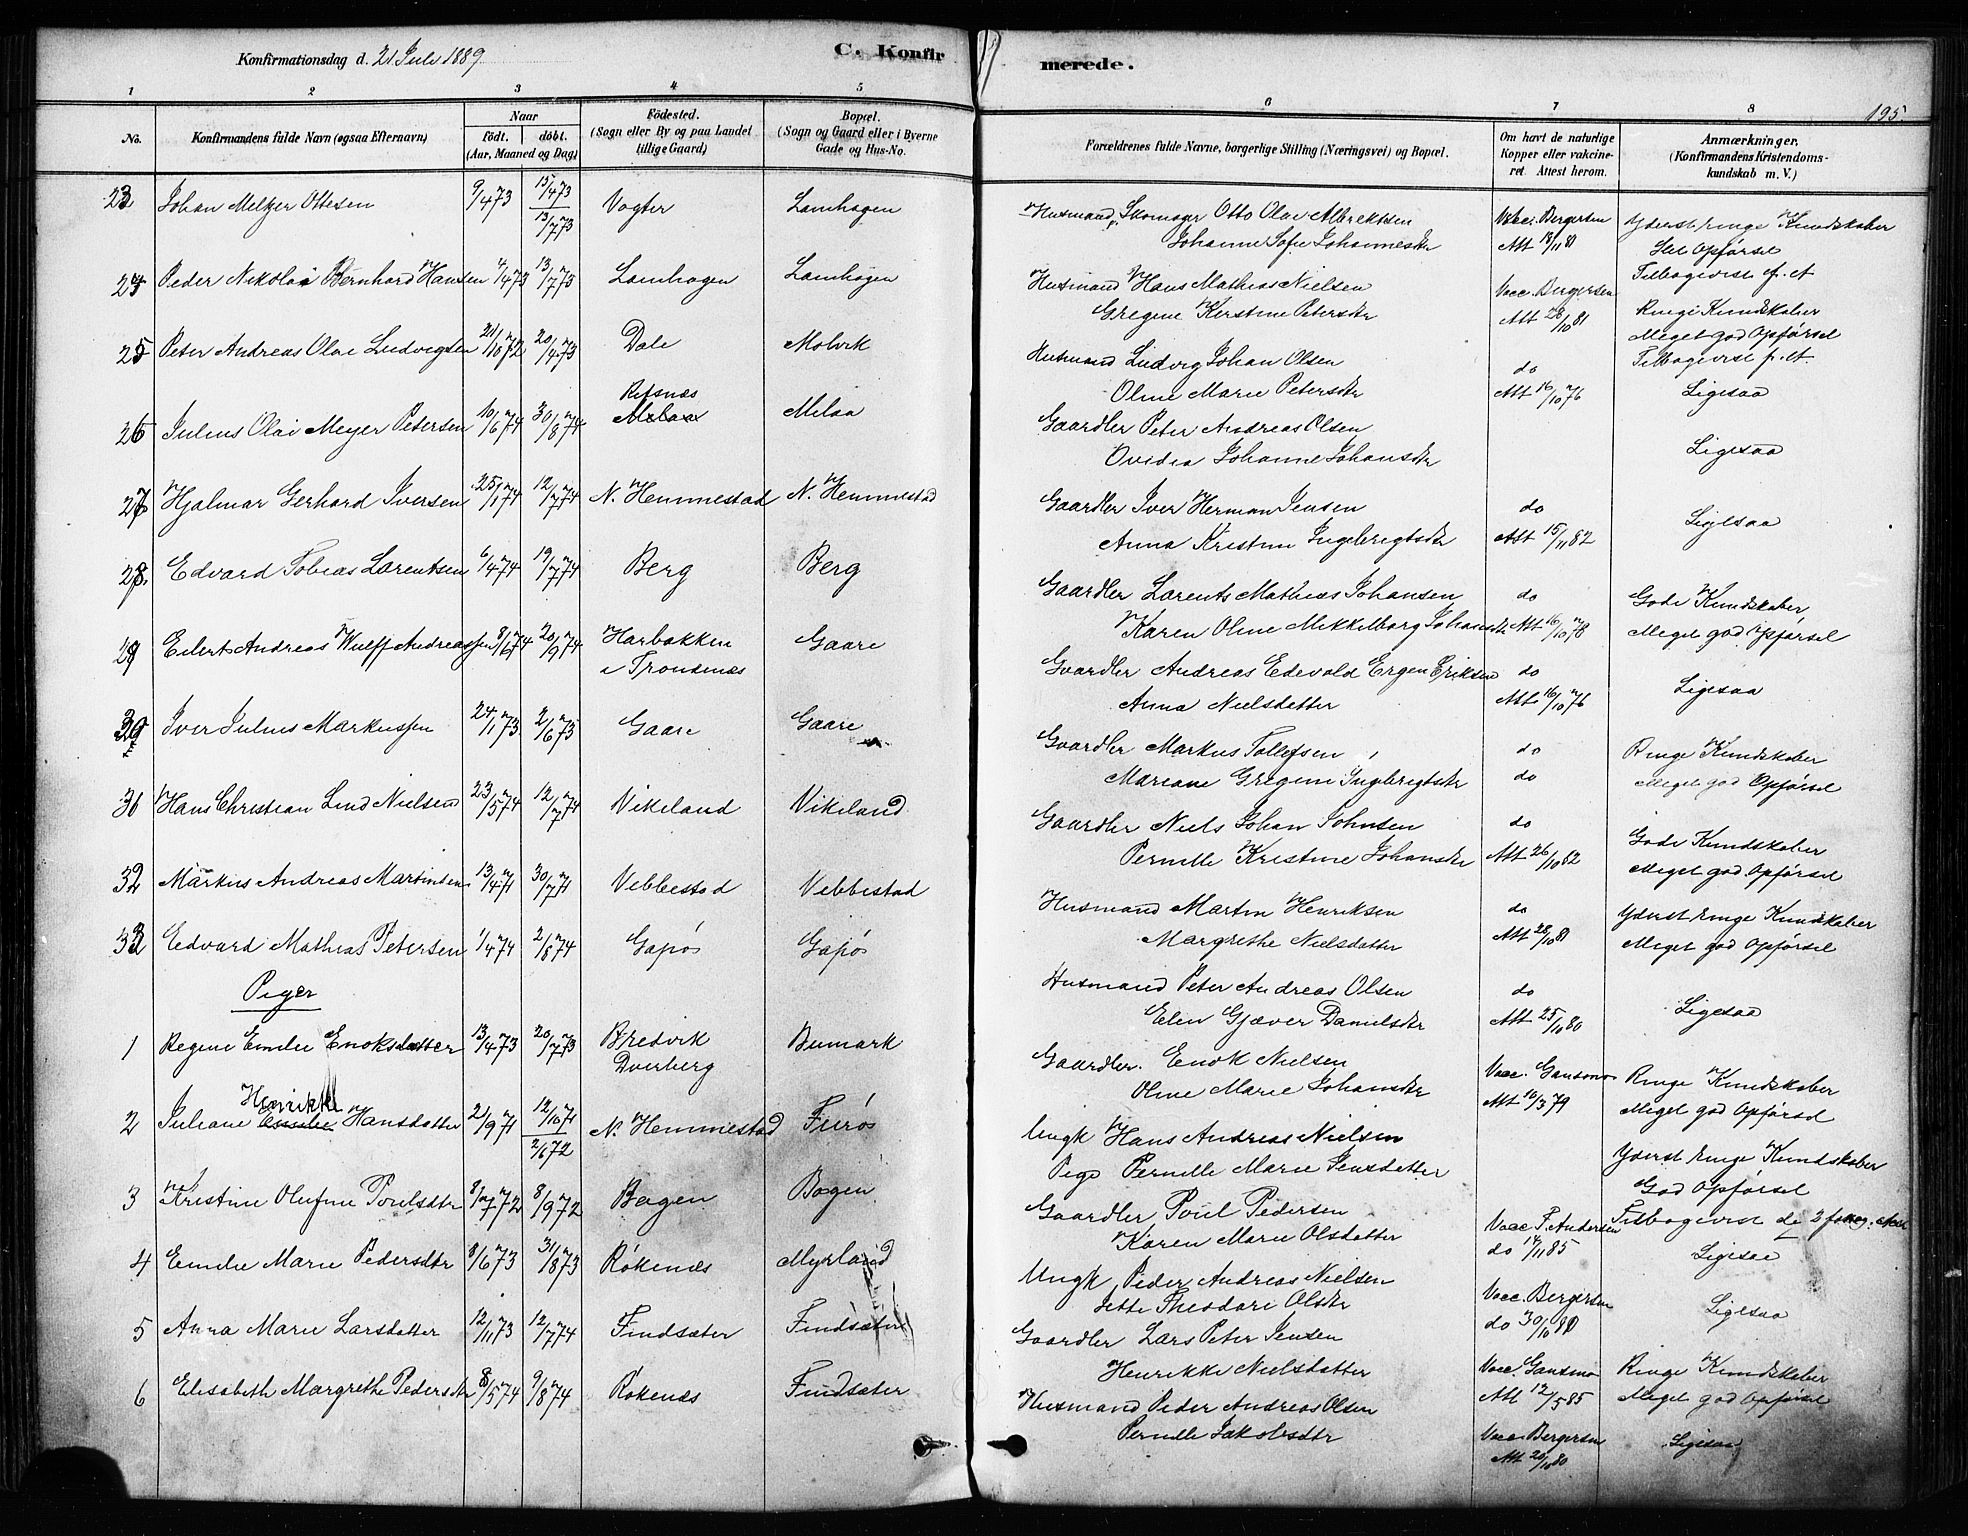 Konfirmationsdag d. 21 Juli 1889
C. Konfirmerede.
195
1 2 3 4 5 6 7 8
No.
Konfirmandens fulde Navn (ogsaa Efternavn)
Naar
födt. döbt.
(Aar, Maaned og Dag)
Födested.
(Sogn eller By og paa Landet tillige Gaard)
Bopæl.
(Sogn og Gaard eller i Byerne Gade og Hus-No.
Forældrenes fulde Navne, borgerlige Stilling (Næringsvei) og Bopæl.
Om havt de naturlige Kopper eller vakcineret. Attest herom.
Anmærkninger.
(Konfirmandens Kristendomskundskab m. V.)
23 Johan Meltzer Ottesen 9/4 73 15/4 73 13/7 73 Vogter Lamhagen
Husmand, Skomager Otto Olai Albrektsen Vacc. Bergersen Yderst ringe Kundskaber
Johanne Sofie Johannesdtr Att 18/11 81 Slet Opførsel
Tilbagevist f. A
24 Peder Nikolai Bernhard Hansen 4/4 73 13/7 73 Lamhagen Lamhagen
Husmand Hans Mathias Nielsen Vacc. Bergersen Ringe Kundskaber
Gregine Kirstine Petersdtr Att 28/10 81 Meget god Opførsel
Tilbagevist f. A.
25 Peter Andreas Olai Ludvigsen 21/10 72 20/4 73 Dale Molvik
Husmand Ludvig Johan Olsen do
Oline Marie Petersdtr Att 16/10 76 Ligesaa
26 Julius Olai Meyer Petersen 10/6 74 30/8 74 Refsnæs Melaa Melaa
Gaardbr Peter Andreas Olsen
Ovidia Johanne Johansdtr Ligesaa
27 Hjalmar Gerhard Iversen 25/1 74 12/7 74 N. Hemmestad N. Hemmestad
Gaardbr Iver Herman Jensen do
Anna Kristine Ingebrigtsdtr Att 15/11 82 Ligesaa
28. Edvard Tobias Lorentsen 6/4 74 19/7 74 Berg Berg
Gaardbr Lorents Mathias Johansen do Gode Kundskaber
Karen Oline Mikkelborg Johansdtr Att 16/10 78 Meget god Opførsel
29 Eilert Andreas Wulff Andreassen 8/6 74 20/9 74 Harbakken i Trondenæs Gaare
Gaardbr Andreas Edevald Ergen Eriksen do
Anna Nielsdatter Att 16/10 76 Ligesaa
30 Iver Julius Markussen 24/1 73 2/6 73 Gaare Gaare
Gaardbr Markus Tollefsen do Ringe Kundskaber
Mariane Gregine Ingebrigtsdtr do Meget god Opførsel
31 Hans Christian Lind Nielsen 23/5 74 12/7 74 Vikeland Vikeland
Gaardbr Niels Johan Johnsen do Gode Kundskaber
Pernille Kristine Johansdtr Att 26/10 82 Meget god Opførsel
32 Markus Andreas Martinsen 13/4 71 30/7 71 Vebbestad Vebbestad
Husmand Martin Henriksen do Yderst ringe Kundskaber
Margrethe Nielsdatter Att 28/10 81 Meget god Opførsel
33 Edvard Mathias Petersen 1/4 74 2/8 74 Gapøs Gapøs
Husmand Peter Andreas Olsen do
Elen Gjæver Danielsdtr Att 25/10 80 Ligesaa
Piger
1 Regine Emilie Enoksdatter 13/4 73 20/7 73 Bredvik Dverberg Bumark
Gaardbr. Enok Nielsen Vacc. Gansmo Ringe Kundskaber
Oline Marie Johansdtr Att 10/3 79 Meget god Opførsel
2 Juliane Emilie Henrikke Hansdatter 21/9 71 12/10 71 2/6 72 N. Hemmestad Furøs
Ungk Hans Andreas Nielsen Yderst ringe Kundskaber
Pige Pernille Marie Jensdatter God Opførsel
3 Kristine Olufine Poulsdtr 8/7 72 8/9 72 Bogen Bogen
Gaardbr Poul Pedersen Vacc F. Andersen Tilbagevist de 2 foreg. Aar
Karen Marie Olsdatter do 14/11 85 Ligesaa
4 Emilie Marie Pedersdtr 8/6 73 31/8 73 Røkenæs Myrland
Ungk Peder Andreas Nielsen Vacc. Bergersen
Jette Theodore Olsdtr do 30/10 80 Ligesaa
5 Anna Marie Larsdatter 12/11 73 12/7 74 Findsæter Findsæter
Gaardbr Lars Peter Jensen Vacc. Gansmo Ringe Kundskaber
Henrikke Nielsdatter Att 12/5 85 Meget god Opførsel
6 Elisabeth Margrethe Pedersdtr 8/5 74 9/8 74 Røkenæs Findsæter
Husmand Peder Andreas Olsen Vacc. Bergersen
Pernille Jakobsdtr Att 20/10 80 Ligesaa